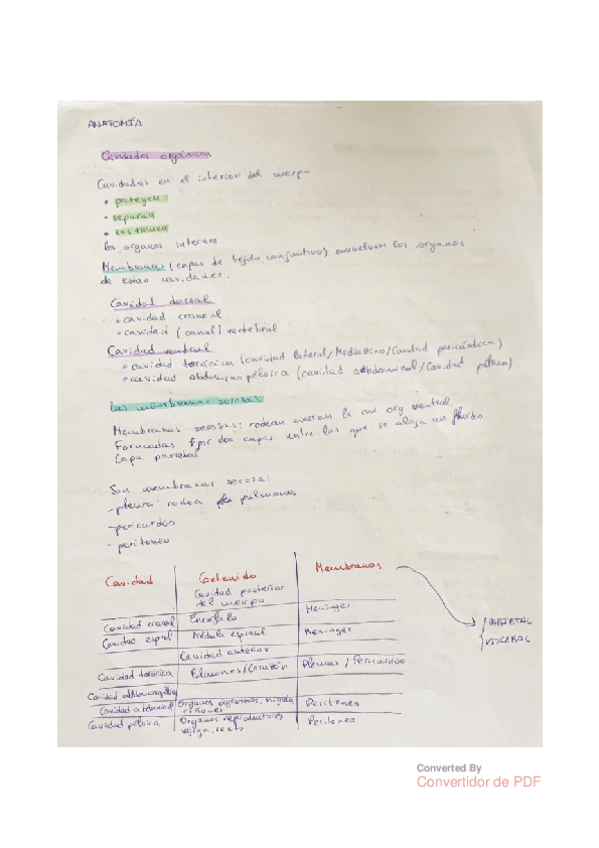 ANATOMÍA
Cavidades orgánicas
Cavidades en el interior del cuerpo
• protegen
• separan
• sostienen
los organos internos.
Membranas (capas de tejido conjuntivo) envuelven los organos
de estas cavidades.
Cavidad dorsal
• cavidad craneal
• cavidad (canal) vertebral
Cavidad ventral
• cavidad torácica (cavidad lateral/Mediastino/Cavidad pericárdica)
• cavidad abdominopélvica (cavidad abdominal/Cavidad pélvica)
Las membranas serosas
Membranas serosas: rodean la cav org ventral.
Formadas por dos capas entre las que se aloja un fluido
Capa parietal
Son membranas serosa:
- pleura: rodea pulmones
- pericardio
- peritoneo
Cavidad Contenido Membranas
Cavidad posterior
del cuerpo
Cavidad craneal Encéfalo Meninges
Cavidad espinal Médula espinal Meninges
Cavidad anterior
Cavidad torácica Pulmones/Corazón Pleuras / Pericardio
Cavidad
Cavidad abdominal Organos digestivos, riñones Peritoneo
Cavidad pélvica Organos reproductores Peritoneo
vejiga, recto
PARIETAL
VISCERAL
Converted By
Convertidor de PDF